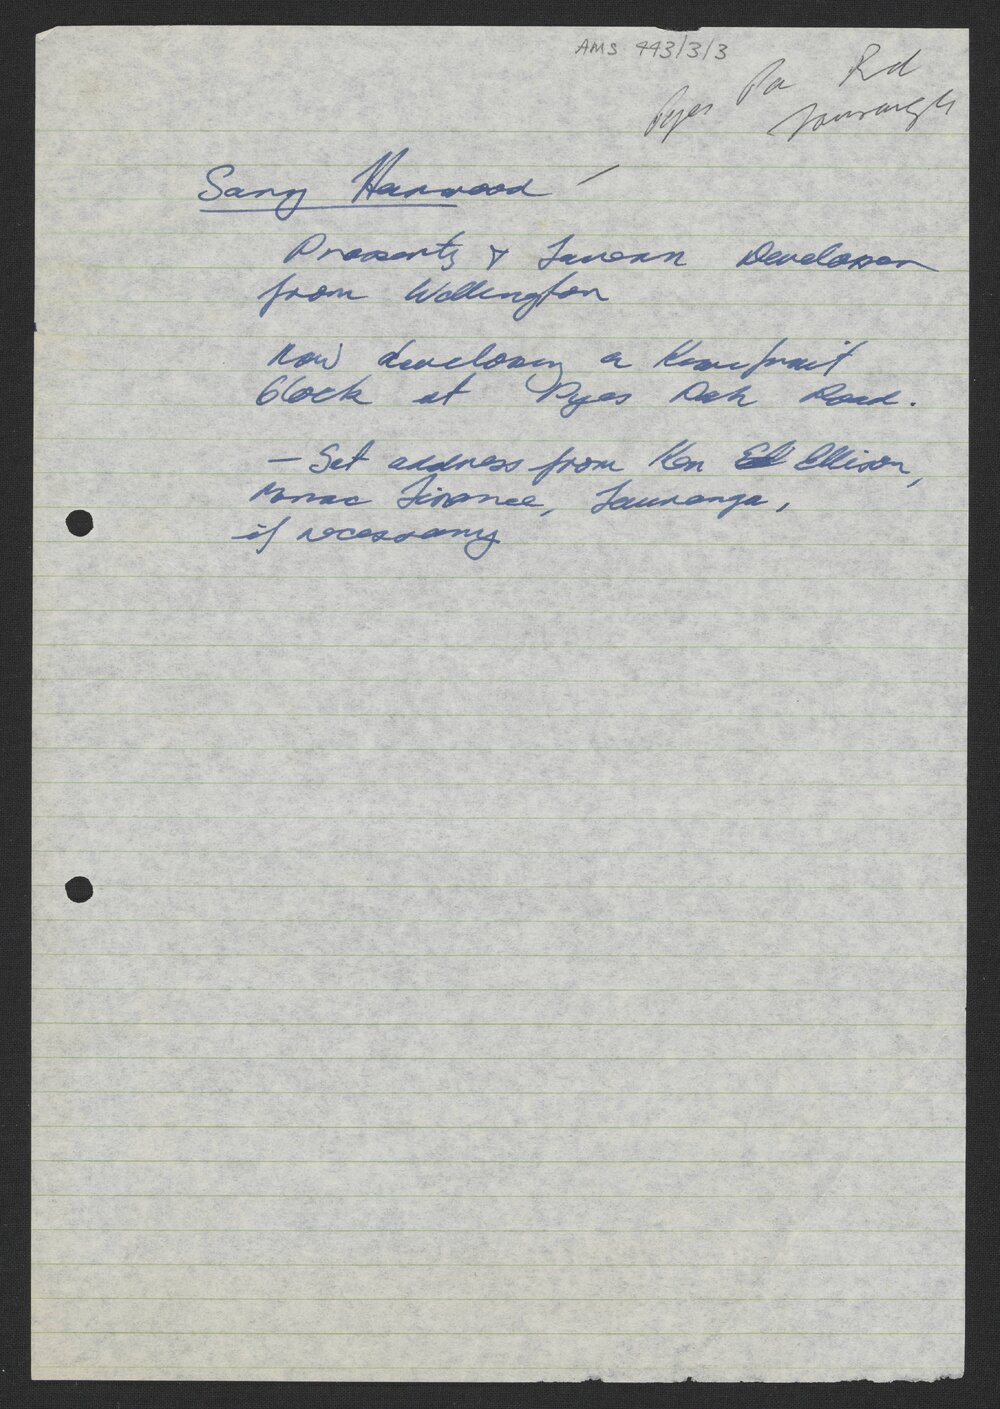 AMS 443/3/3
Pyes Pa Rd
Tauranga
Harwood –
Property & Tavern Developer
from Wellington
Now developing a Kiwifruit
block at Pyes Pah Road.
– Get address from Ken Ellison,
Finance, Tauranga,
if necessary